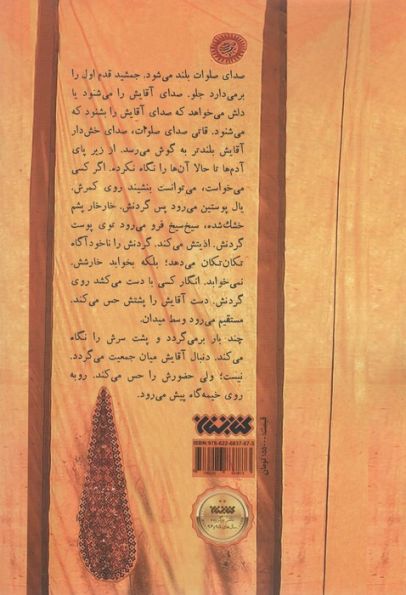 صدای صلوات بلند می‌شود. جمشید قدم اول را
برمی‌دارد جلو. صدای آقایش را می‌شنود یا
دلش می‌خواهد که صدای آقایش را بشنود که
می‌شنود. قاتی صدای صلوات، صدای خش‌دار
آقایش بلندتر به گوش می‌رسد. از زیر پای
آدم‌ها تا حالا آن‌ها را نگاه نکرده. اگر کسی
می‌خواست، می‌توانست بنشیند روی کمرش.
یال پوستین می‌رود پس گردنش. خارخار پشم
خشک‌شده، سیخ‌سیخ فرو می‌رود توی پوست
گردنش. اذیتش می‌کند. گردنش را ناخودآگاه
تکان‌تکان می‌دهد؛ بلکه بخوابد خارشش.
نمی‌خوابد. انگار کسی با دست می‌کشد روی
گردنش. دست آقایش را پشتش حس می‌کند.
مستقیم می‌رود وسط میدان.
چند بار برمی‌گردد و پشت سرش را نگاه
می‌کند. دنبال آقایش میان جمعیت می‌گردد.
نیست؛ ولی حضورش را حس می‌کند. روبه
روی خیمه‌گاه پیش می‌رود.
کتابستان
ISBN: 978-622-6837-67-5
کتابستان